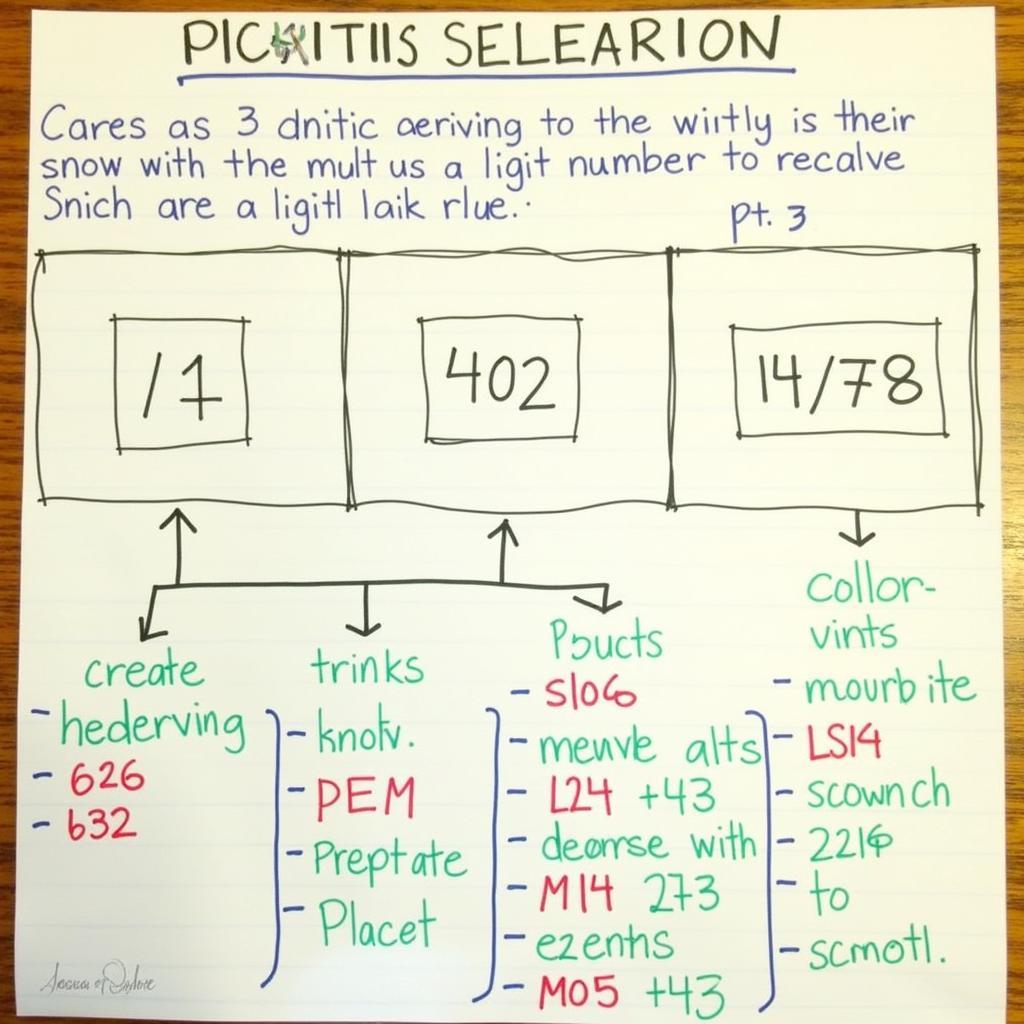 PICKITIIS SELEARION
Cares as 3 dnitic aeriving to the wiitly is their
snow with the mult us a ligit number to recalve
Snich are a ligitl laik rlue.
pt. 3
/1
402
14/78
create
- hederving
- 626
- 632
trinks
- knotv.
- PEM
- Preptate
- Placet
Pɔucts
- S106
- meuvle alts
- L24 +43
- deomse with
- M14 273
- ezenths
- M05 +43
Collor-
vints
- mourbite
- LS14
- scownch
- 221
- to
- scmotl.